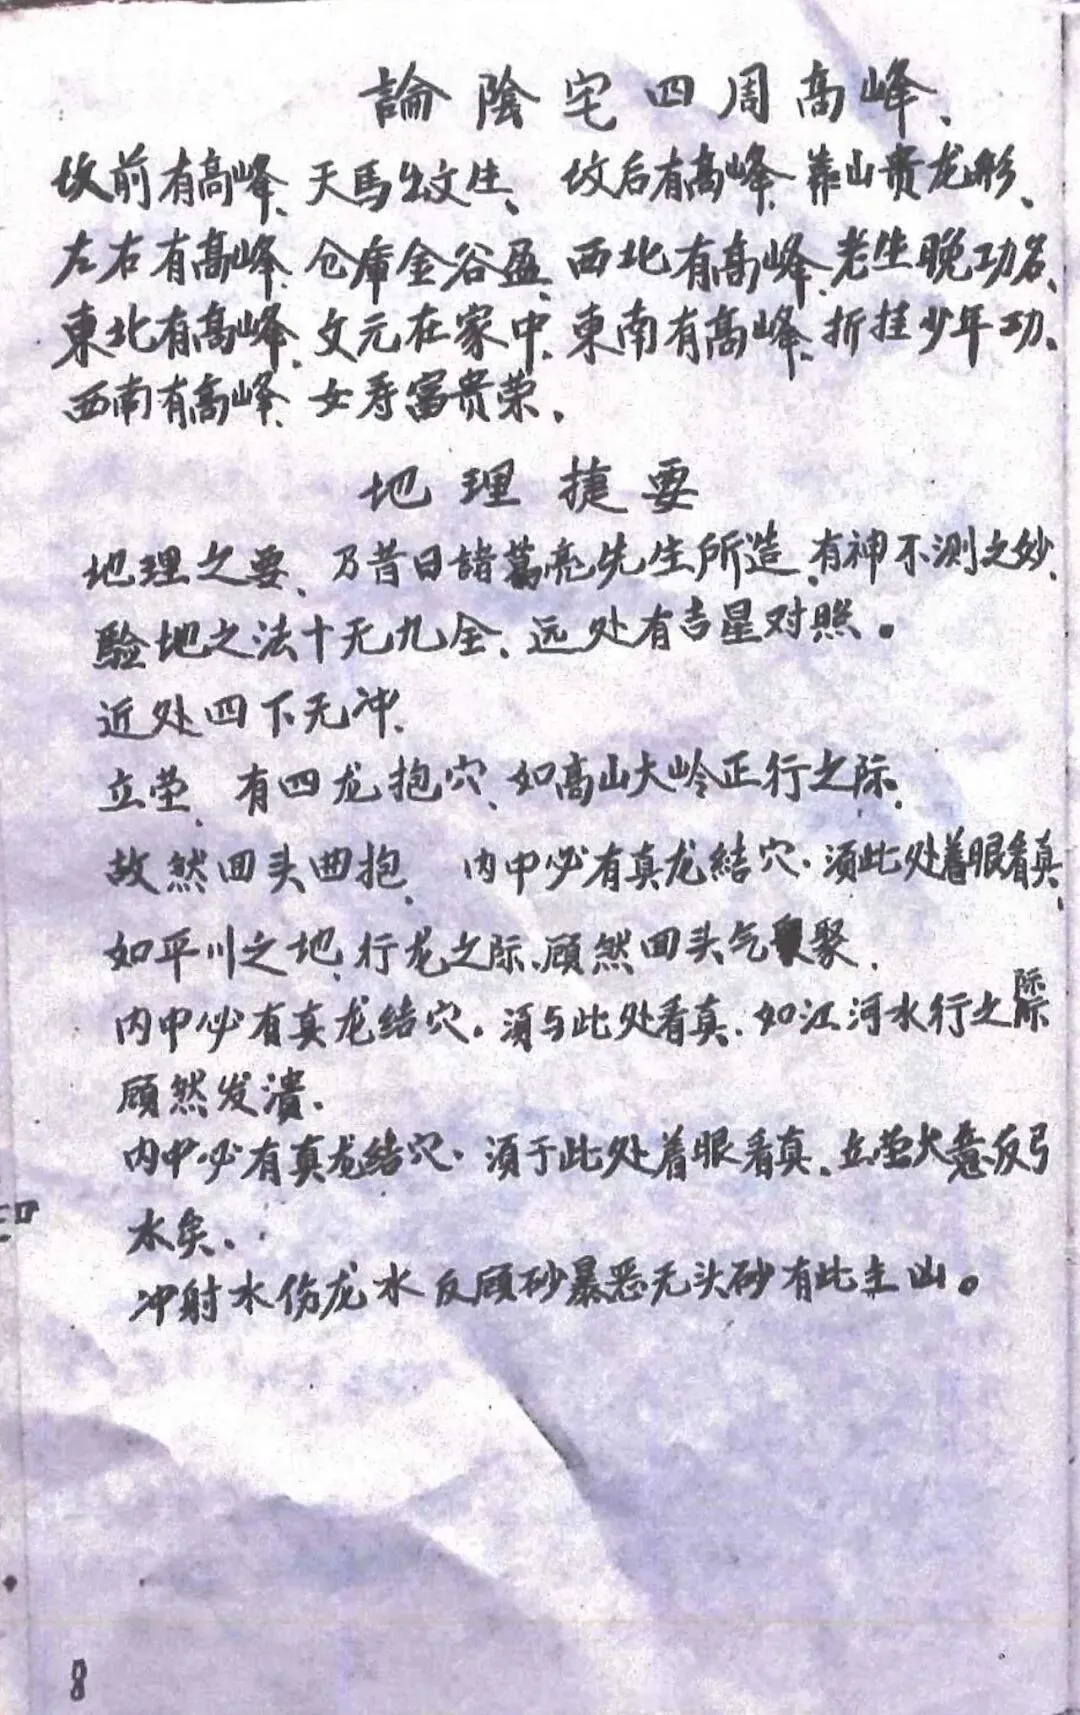 論陰宅四周高峰、
坟前有高峰、天馬出文生、坟后有高峰、靠山贵龙形、
左右有高峰、仓庫金谷盈、西北有高峰、老生晚功名、
東北有高峰、文元在家中、東南有高峰、折挂少年功、
西南有高峰、女寿富贵荣、
地理捷要
地理之要、乃昔日諸葛亮先生所造、有神不测之妙、
驗地之法十无九全、远处有吉星对照。
近处四下无冲、
立茔、有四龙抱穴、如高山大岭正行之际、
故然回头曲抱、内中必有真龙結穴、须此处着眼看真、
如平川之地、行龙之际、顾然回头气聚、
内中必有真龙结穴。须与此处看真、如江河水行之际
顾然发溃、
内中必有真龙结穴、须于此处着眼看真、立茔大意反弓
水矣、
冲射水伤龙水反顾砂暴恶无头砂有此主凶。
8